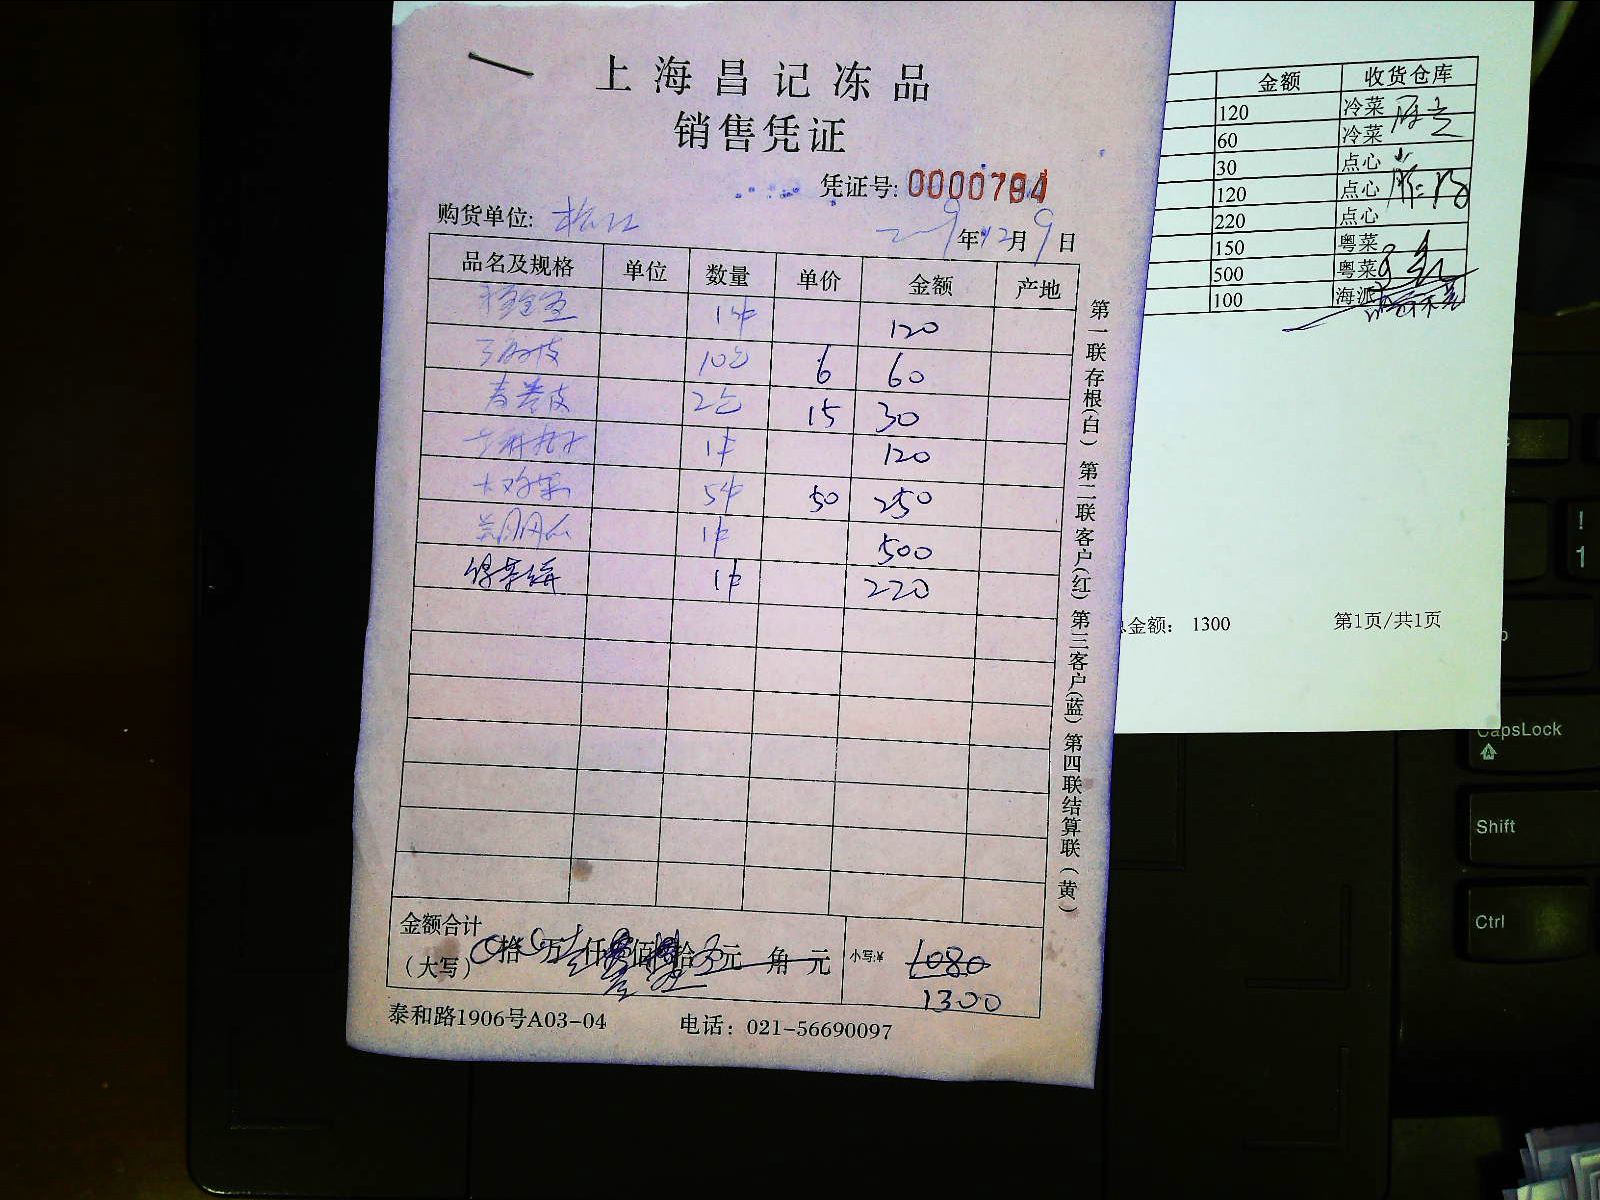 上海昌记冻品
销售凭证
凭证号: 0000794
购货单位: 松江
年12月9日
品名及规格 单位 数量 单价 金额 产地
1件 120
10包 6 60
春卷皮 2包 15 30
1件 120
5件 50 250
1件 500
绿茶饼 1件 220
金额合计
(大写) 拾 万 仟 佰 拾 元 角 元 小写:¥ 1080
1300
泰和路1906号A03-04 电话: 021-56690097
第一联存根(白) 第二联客户(红) 第三客户(蓝) 第四联结算联(黄)
金额 收货仓库
120 冷菜
60 冷菜
30 点心
120 点心
220 点心
150 粤菜
500 粤菜
100 海派
总金额: 1300 第1页/共1页
CapsLock
Shift
Ctrl
!
1